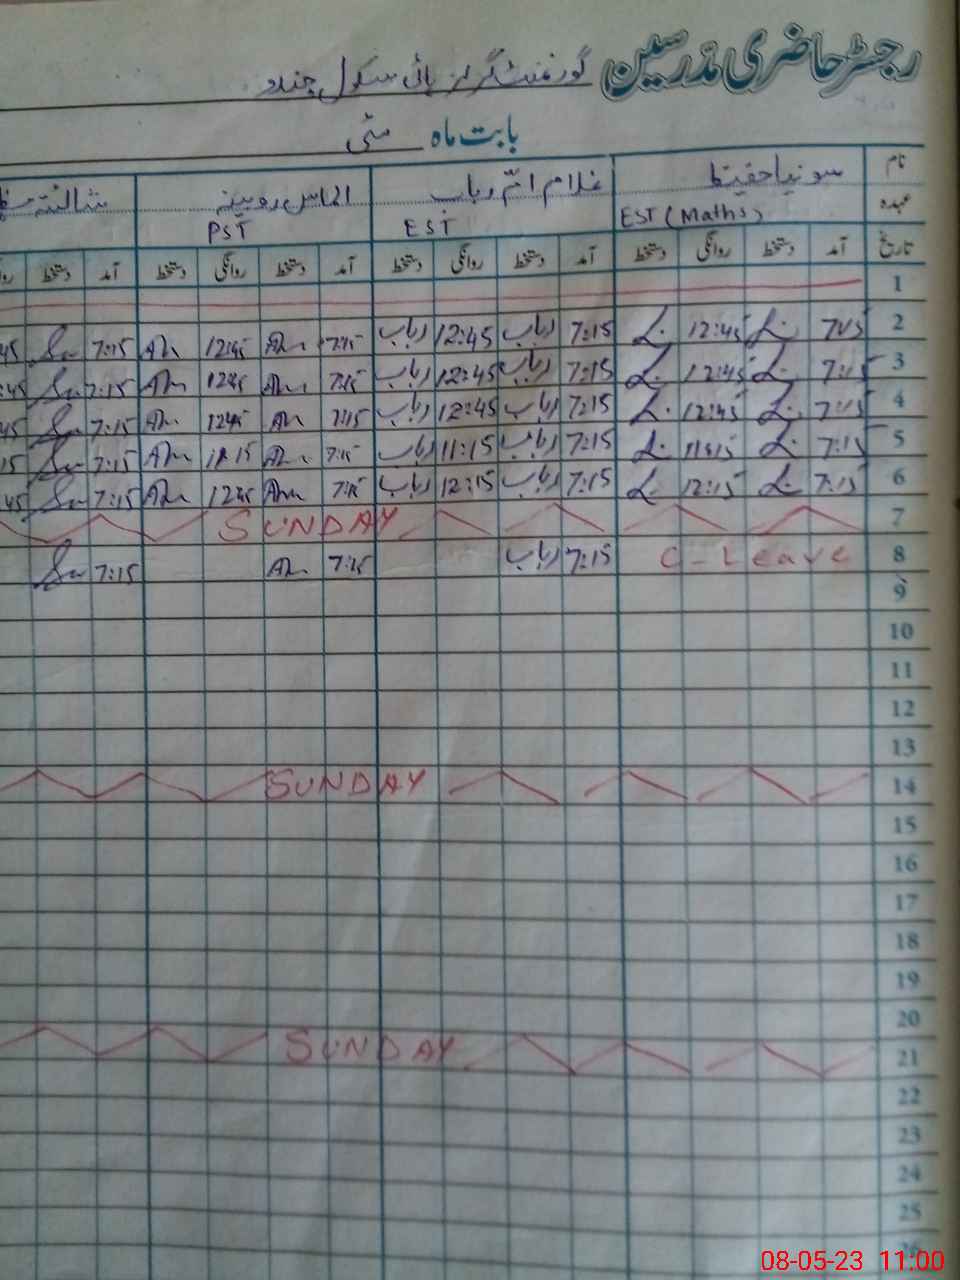 رجسٹر حاضری مدرسین گورنمنٹ گرلز ہائی سکول چندو
بابت ماہ مئی
نام سونیا حفیظ غلام ام رباب الماس روبینہ شائستہ
عہدہ EST (Maths) EST PST
تاریخ آمد دستخط روانگی دستخط آمد دستخط روانگی دستخط آمد دستخط روانگی دستخط آمد دستخط
1
2 7:15 12:45 7:15 رباب 12:45 رباب 7:15 12:45 7:15 45
3 7:15 12:45 7:15 رباب 12:45 رباب 7:15 12:45 7:15 :45
4 7:15 12:45 7:15 رباب 12:45 رباب 7:15 12:45 7:15 45
5 7:15 11:15 7:15 رباب 11:15 رباب 7:15 11:15 7:15 15
6 7:15 12:15 7:15 رباب 12:15 رباب 7:15 12:45 7:15 45
7 SUNDAY
8 C-Leave 7:15 رباب 7:15 7:15
9
10
11
12
13
14 SUNDAY
15
16
17
18
19
20
21 SUNDAY
22
23
24
25
26
08-05-23 11:00